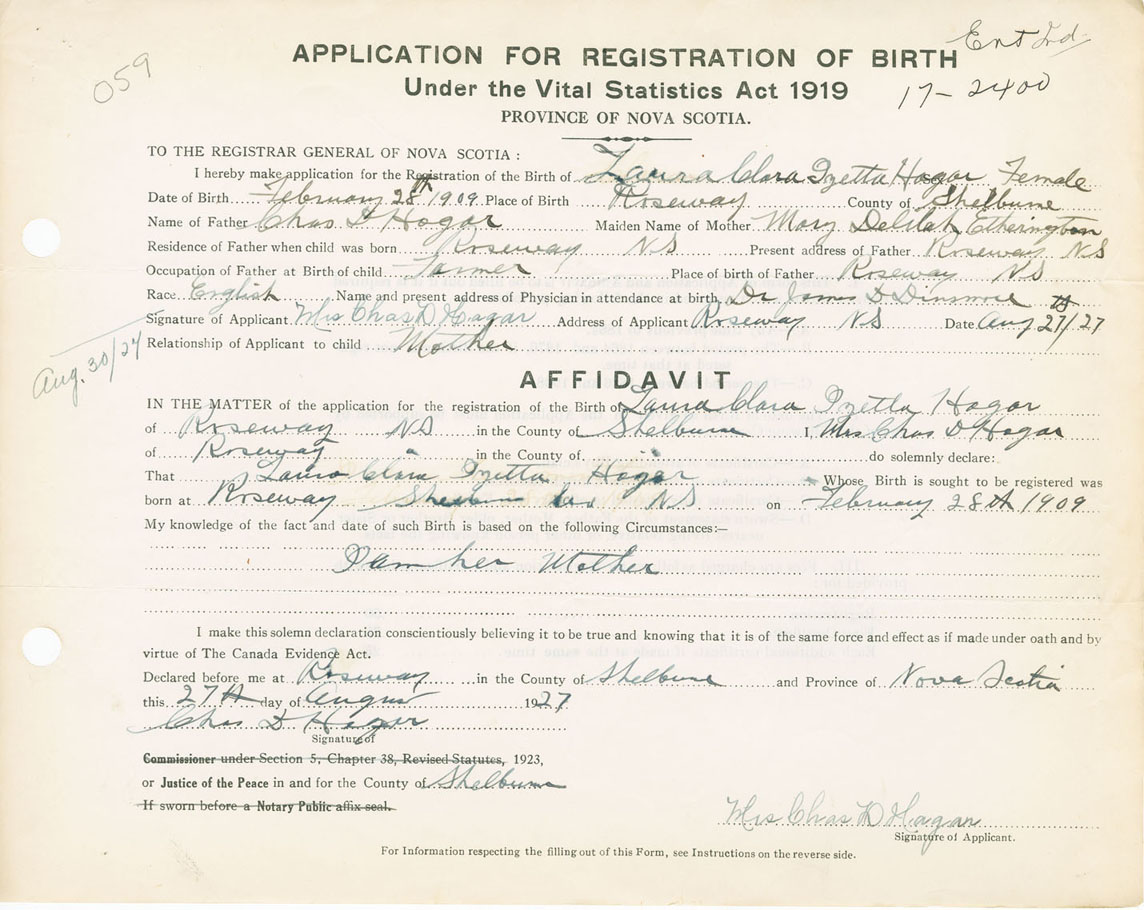 Ent'd
059
APPLICATION FOR REGISTRATION OF BIRTH
17-2400
Under the Vital Statistics Act 1919
PROVINCE OF NOVA SCOTIA.
TO THE REGISTRAR GENERAL OF NOVA SCOTIA :
I hereby make application for the Registration of the Birth of Laura Clara Izetta Hagar Female
Date of Birth February 28th 1909 Place of Birth Roseway County of Shelburne
Name of Father Chas D Hagar Maiden Name of Mother Mary Delilah Etherington
Residence of Father when child was born Roseway NS Present address of Father Roseway NS
Occupation of Father at Birth of child Farmer Place of birth of Father Roseway NS
Race English Name and present address of Physician in attendance at birth Dr James D Dinsmore
Signature of Applicant Mrs Chas D Hagar Address of Applicant Roseway NS Date Aug 27th/27
Relationship of Applicant to child Mother
Aug. 30/27
AFFIDAVIT
IN THE MATTER of the application for the registration of the Birth of Laura Clara Izetta Hagar
of Roseway NS in the County of Shelburne I, Mrs Chas D Hagar
of Roseway in the County of do solemnly declare:
That Laura Clara Izetta Hagar Whose Birth is sought to be registered was
born at Roseway Shelburne Co NS on February 28th 1909
My knowledge of the fact and date of such Birth is based on the following Circumstances:—
I am her Mother
I make this solemn declaration conscientiously believing it to be true and knowing that it is of the same force and effect as if made under oath and by
virtue of The Canada Evidence Act.
Declared before me at Roseway in the County of Shelburne and Province of Nova Scotia
this 27th day of August 1927
Chas D Hagar
Signature of
Commissioner under Section 5, Chapter 38, Revised Statutes, 1923,
or Justice of the Peace in and for the County of Shelburne
If sworn before a Notary Public affix seal.
Mrs Chas D Hagar
Signature of Applicant.
For Information respecting the filling out of this Form, see Instructions on the reverse side.